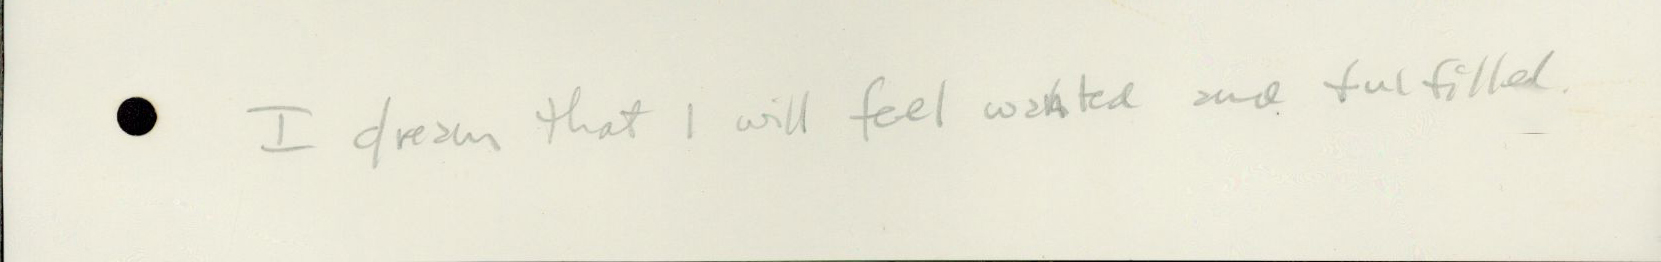 I dream that I will feel wanted and fulfilled.